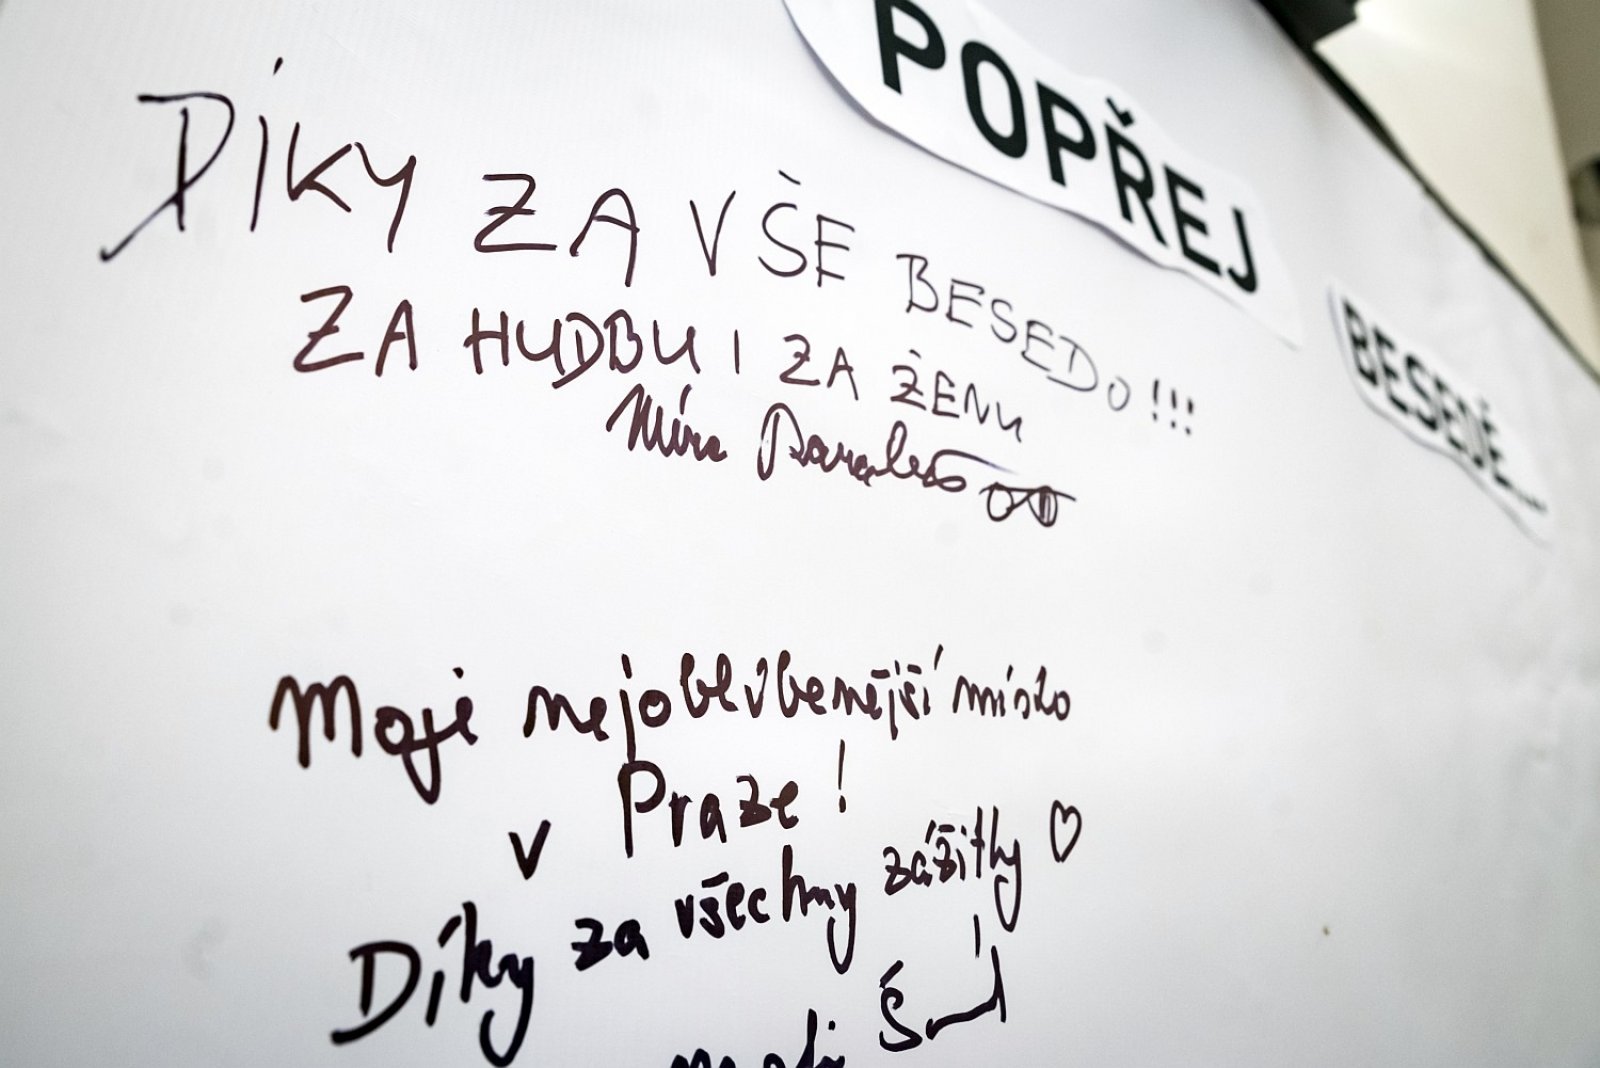 POPŘEJ
BESEDĚ...
DÍKY ZA VŠE BESEDO!!!
ZA HUDBU I ZA ŽENU
Míra
Moje nejoblíbenější místo
v Praze!
Díky za všechny zážitky ♡